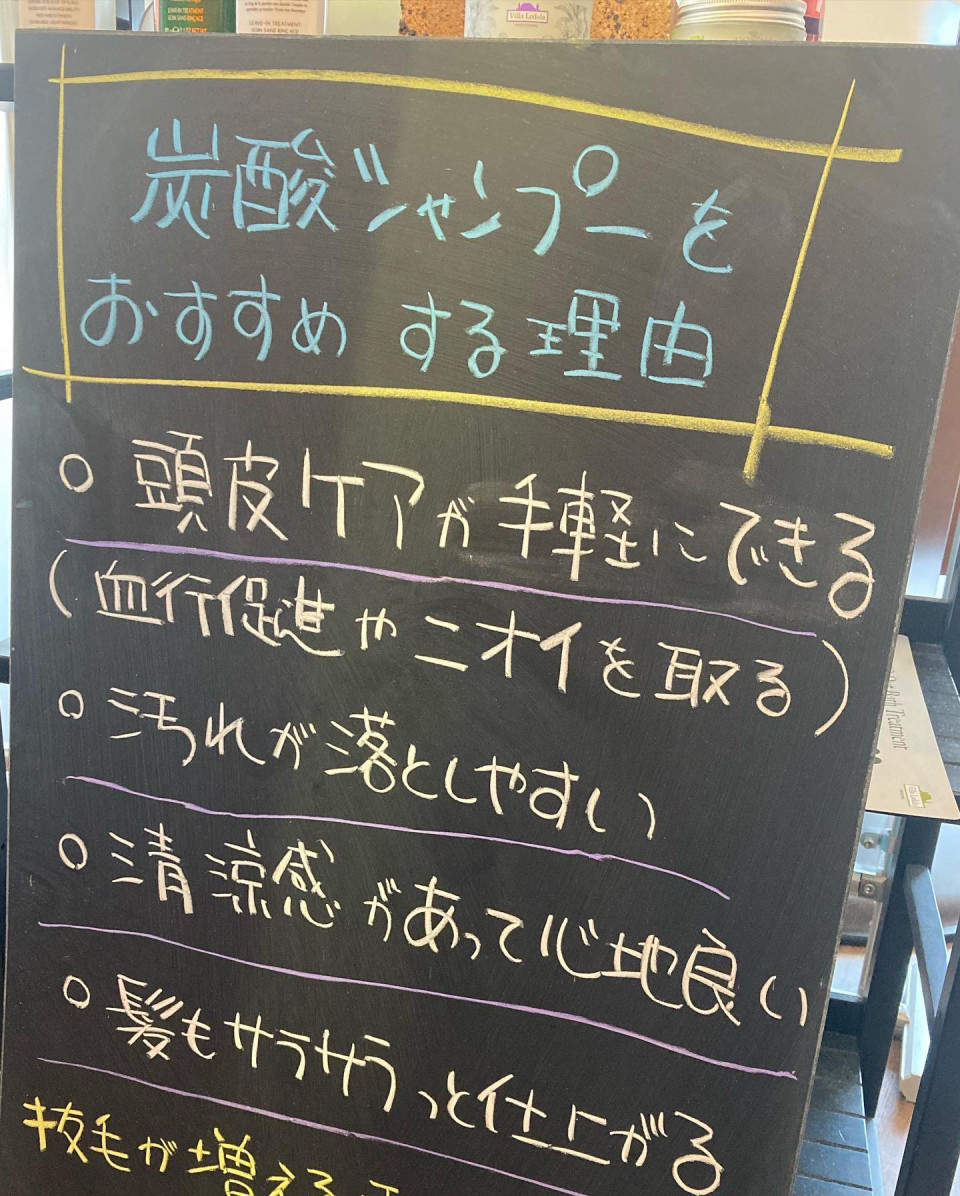 LEAVE-IN TREATMENT
LEAVE-IN TREATMENT
SOIN SANS RINÇAGE
Villa Lodola
炭酸シャンプーを
おすすめする理由
○ 頭皮ケアが手軽にできる
(血行促進やニオイを取る)
○ 汚れが落としやすい
○ 清涼感があって心地良い
○ 髪もサラサラっと仕上がる
抜毛が増える
Rich Treatment